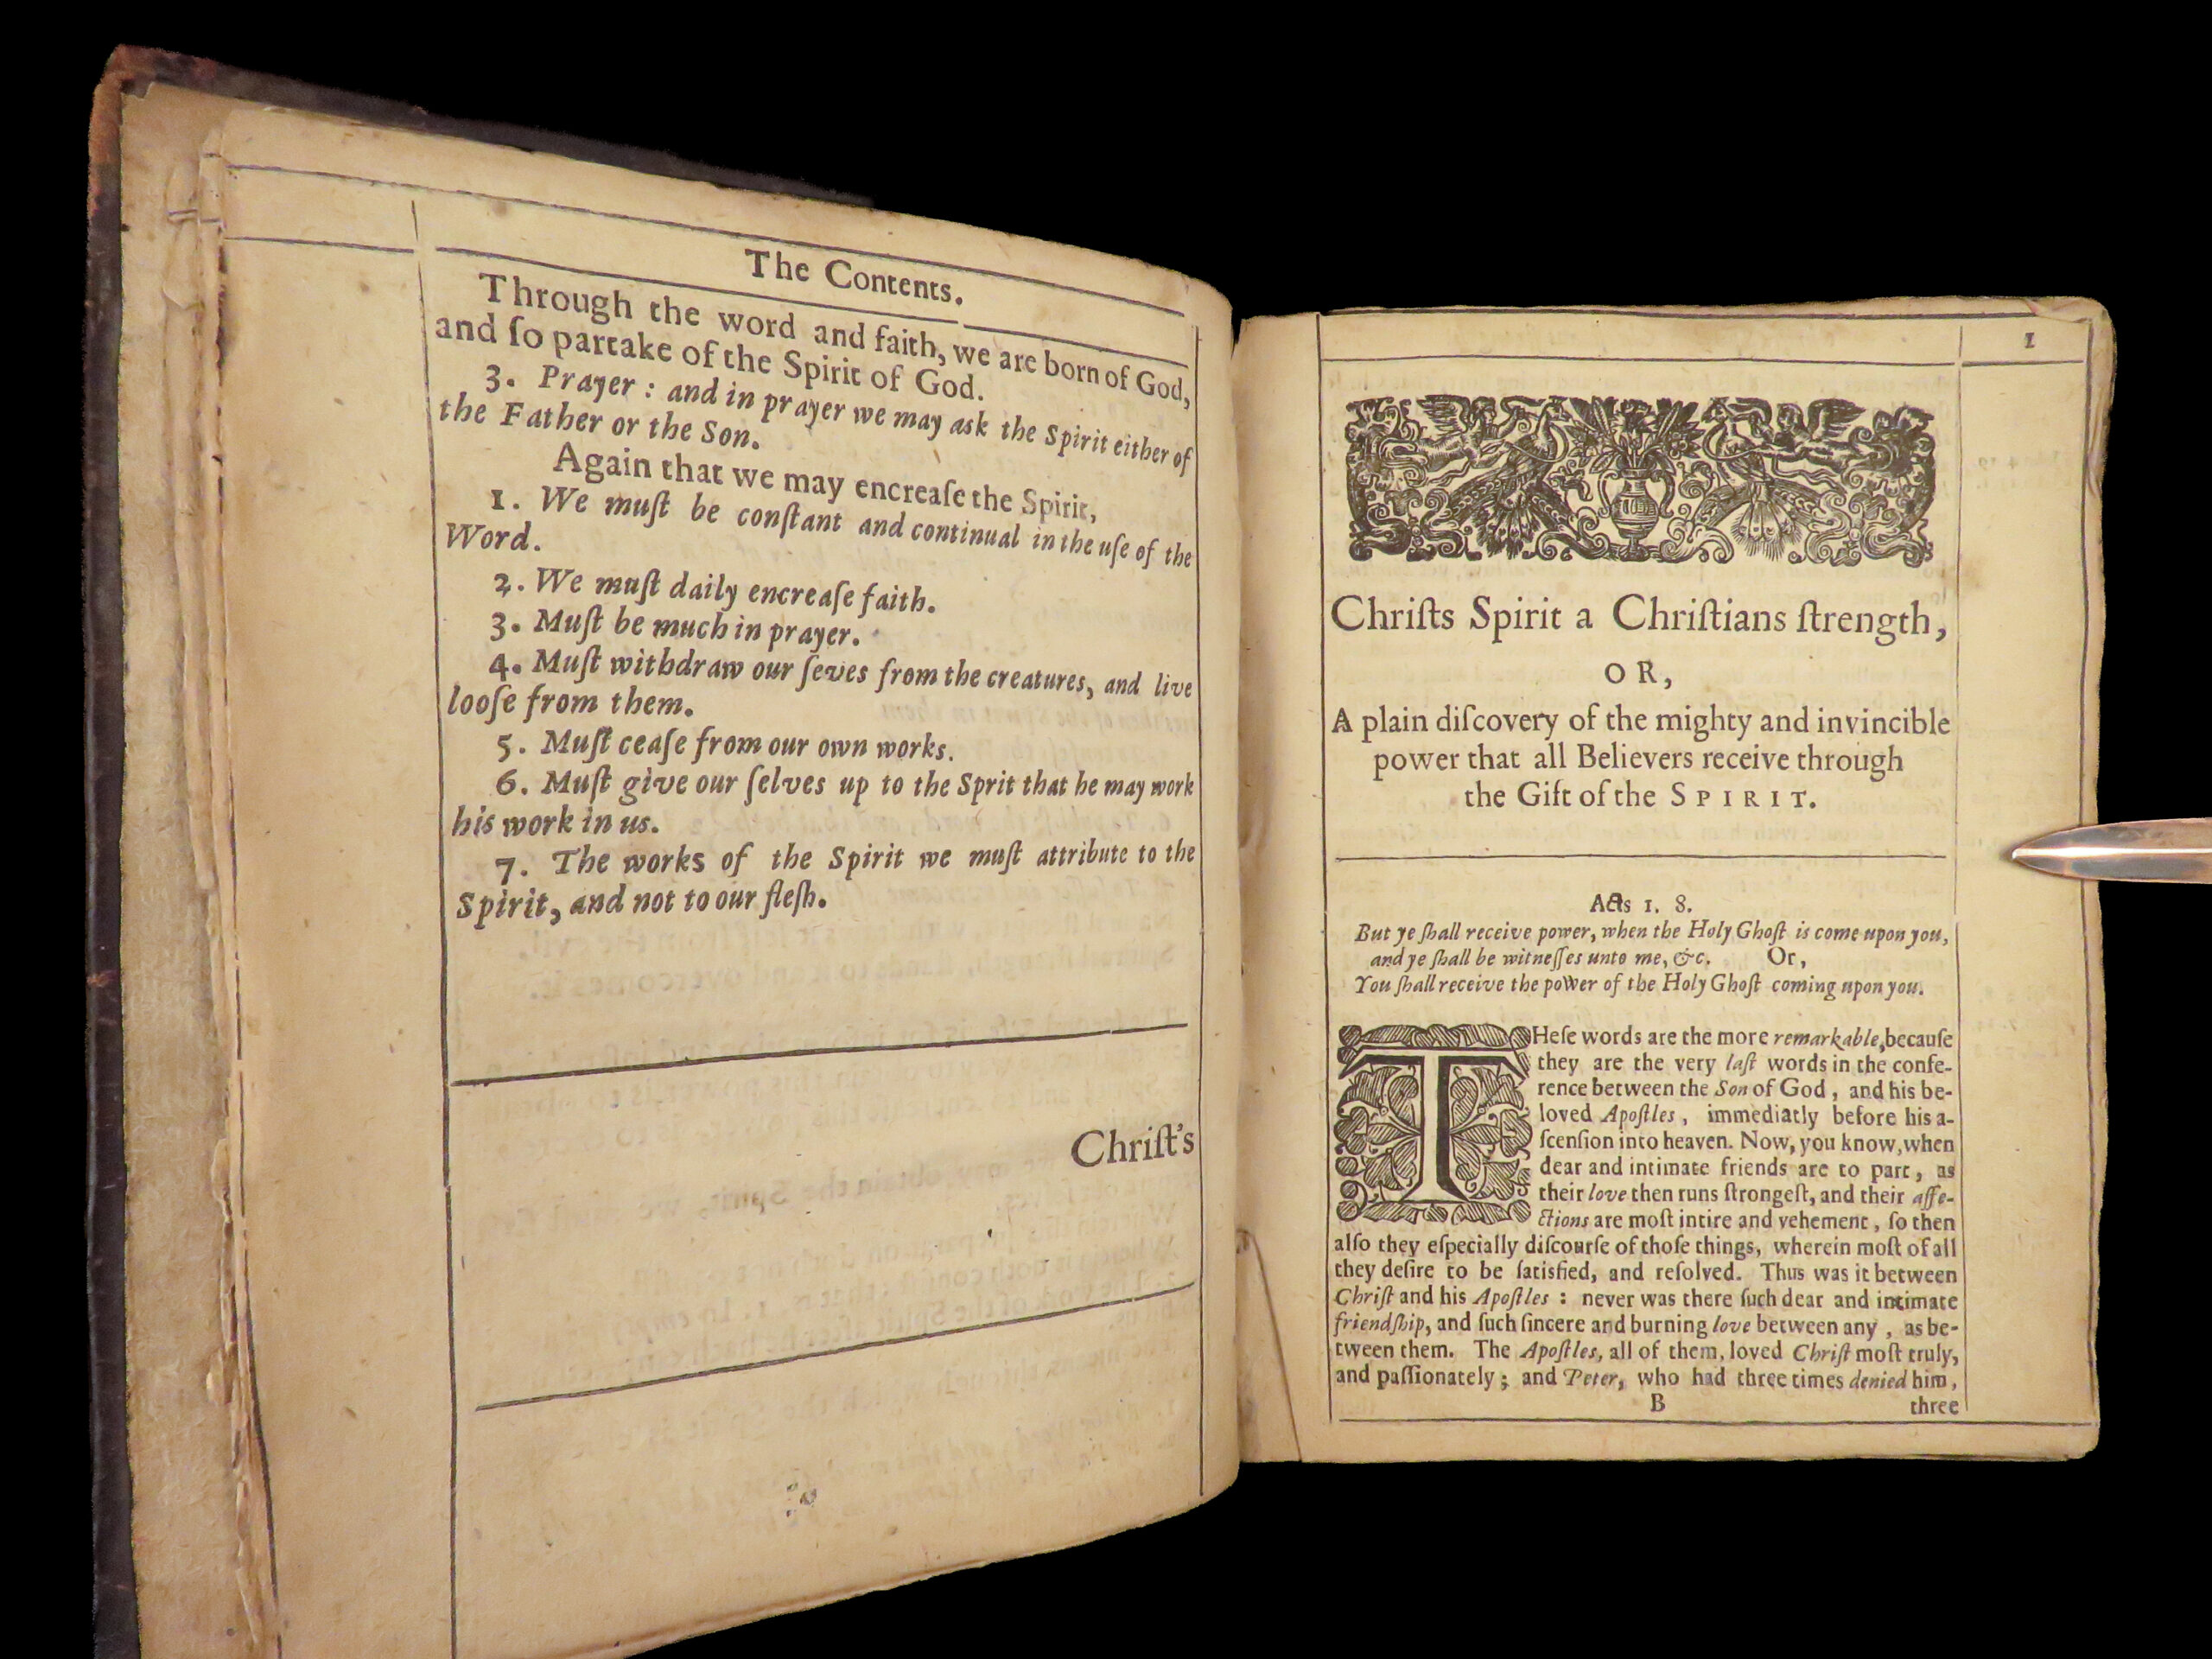 The Contents.
Through the word and faith, we are born of God,
and ſo partake of the Spirit of God.
3. Prayer : and in prayer we may ask the Spirit either of
the Father or the Son.
Again that we may encreaſe the Spirit,
1. We muſt be conſtant and continual in the uſe of the
Word.
2. We muſt daily encreaſe faith.
3. Muſt be much in prayer.
4. Muſt withdraw our ſeves from the creatures, and live
looſe from them.
5. Muſt ceaſe from our own works.
6. Muſt give our ſelves up to the Sprit that he may work
his work in us.
7. The works of the Spirit we muſt attribute to the
Spirit, and not to our fleſh.
Chriſt's
1
Chriſts Spirit a Chriſtians ſtrength,
OR,
A plain diſcovery of the mighty and invincible
power that all Believers receive through
the Gift of the SPIRIT.
Acts 1. 8.
But ye ſhall receive power, when the Holy Ghoſt is come upon you,
and ye ſhall be witneſſes unto me, &c. Or,
You ſhall receive the power of the Holy Ghoſt coming upon you.
THeſe words are the more remarkable, becauſe
they are the very laſt words in the confe-
rence between the Son of God, and his be-
loved Apoſtles, immediatly before his a-
ſcenſion into heaven. Now, you know, when
dear and intimate friends are to part, as
their love then runs ſtrongeſt, and their affe-
ctions are moſt intire and vehement, ſo then
alſo they eſpecially diſcourſe of thoſe things, wherein moſt of all
they deſire to be ſatisfied, and reſolved. Thus was it between
Chriſt and his Apoſtles : never was there ſuch dear and intimate
friendſhip, and ſuch ſincere and burning love between any, as be-
tween them. The Apoſtles, all of them, loved Chriſt moſt truly,
and paſſionately ; and Peter, who had three times denied him,
B three